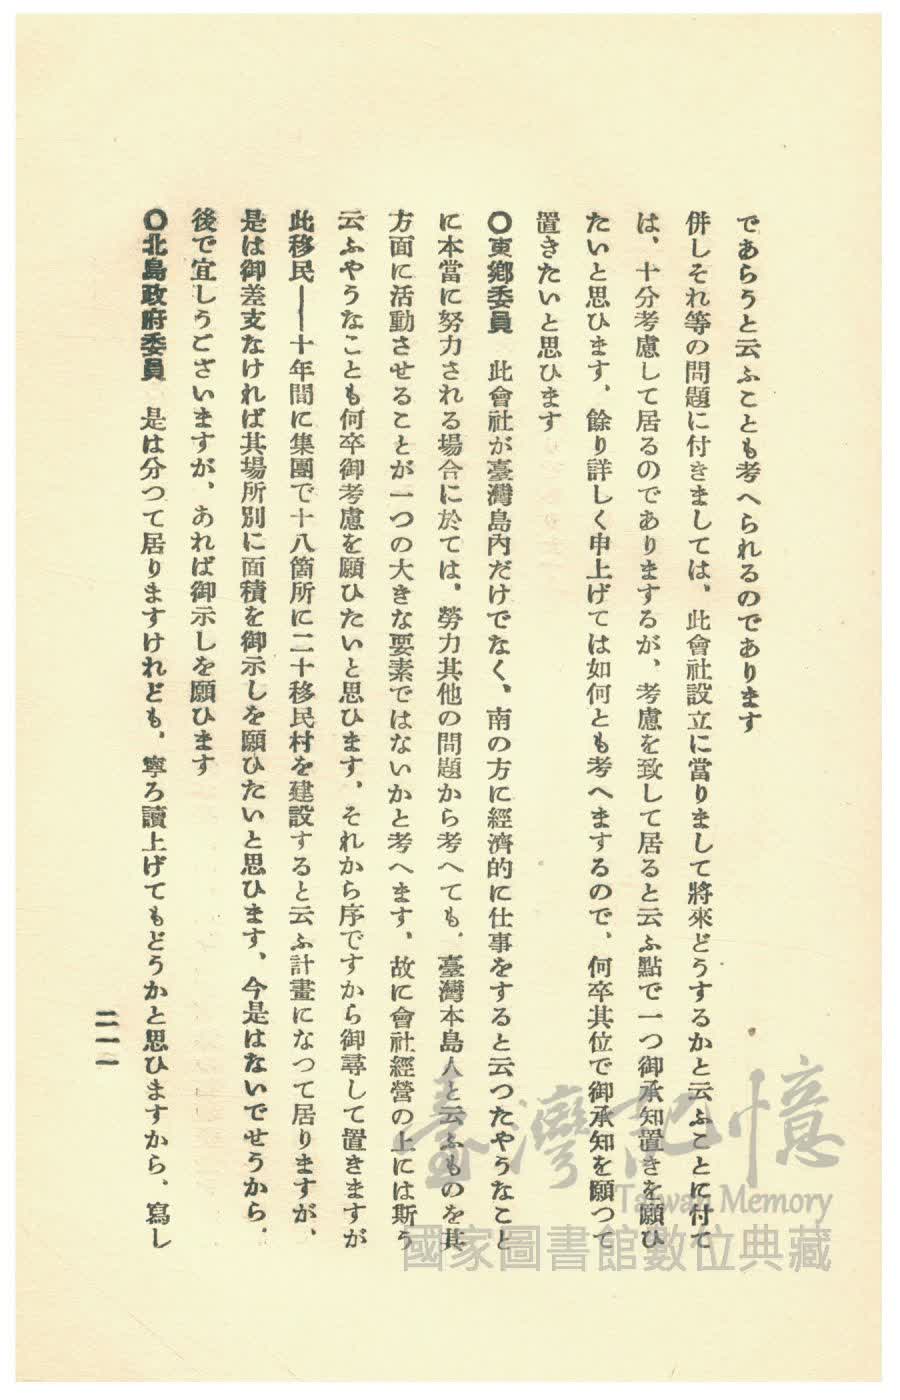 であらうと云ふことも考へられるのであります
併しそれ等の問題に付きましては、此會社設立に當りまして將來どうするかと云ふことに付て
は、十分考慮して居るのでありまするが、考慮を致して居ると云ふ點で一つ御承知置きを願ひ
たいと思ひます、餘り詳しく申上げては如何とも考へまするので、何卒其位で御承知を願つて
置きたいと思ひます
〇東鄕委員　此會社が臺灣島內だけでなく、南の方に經濟的に仕事をすると云つたやうなこと
に本當に努力される場合に於ては、勞力其他の問題から考へても、臺灣本島人と云ふものを其
方面に活動させることが一つの大きな要素ではないかと考へます、故に會社經營の上には斯う
云ふやうなことも何卒御考慮を願ひたいと思ひます、それから序ですから御尋して置きますが
此移民――十年間に集團で十八箇所に二十移民村を建設すると云ふ計畫になつて居りますが、
是は御差支なければ其場所別に面積を御示しを願ひたいと思ひます、今是はないでせうから、
後で宜しうございますが、あれば御示しを願ひます
〇北島政府委員　是は分つて居りますけれども、寧ろ讀上げてもどうかと思ひますから、寫し
二一一
臺灣記憶
Taiwan Memory
國家圖書館數位典藏